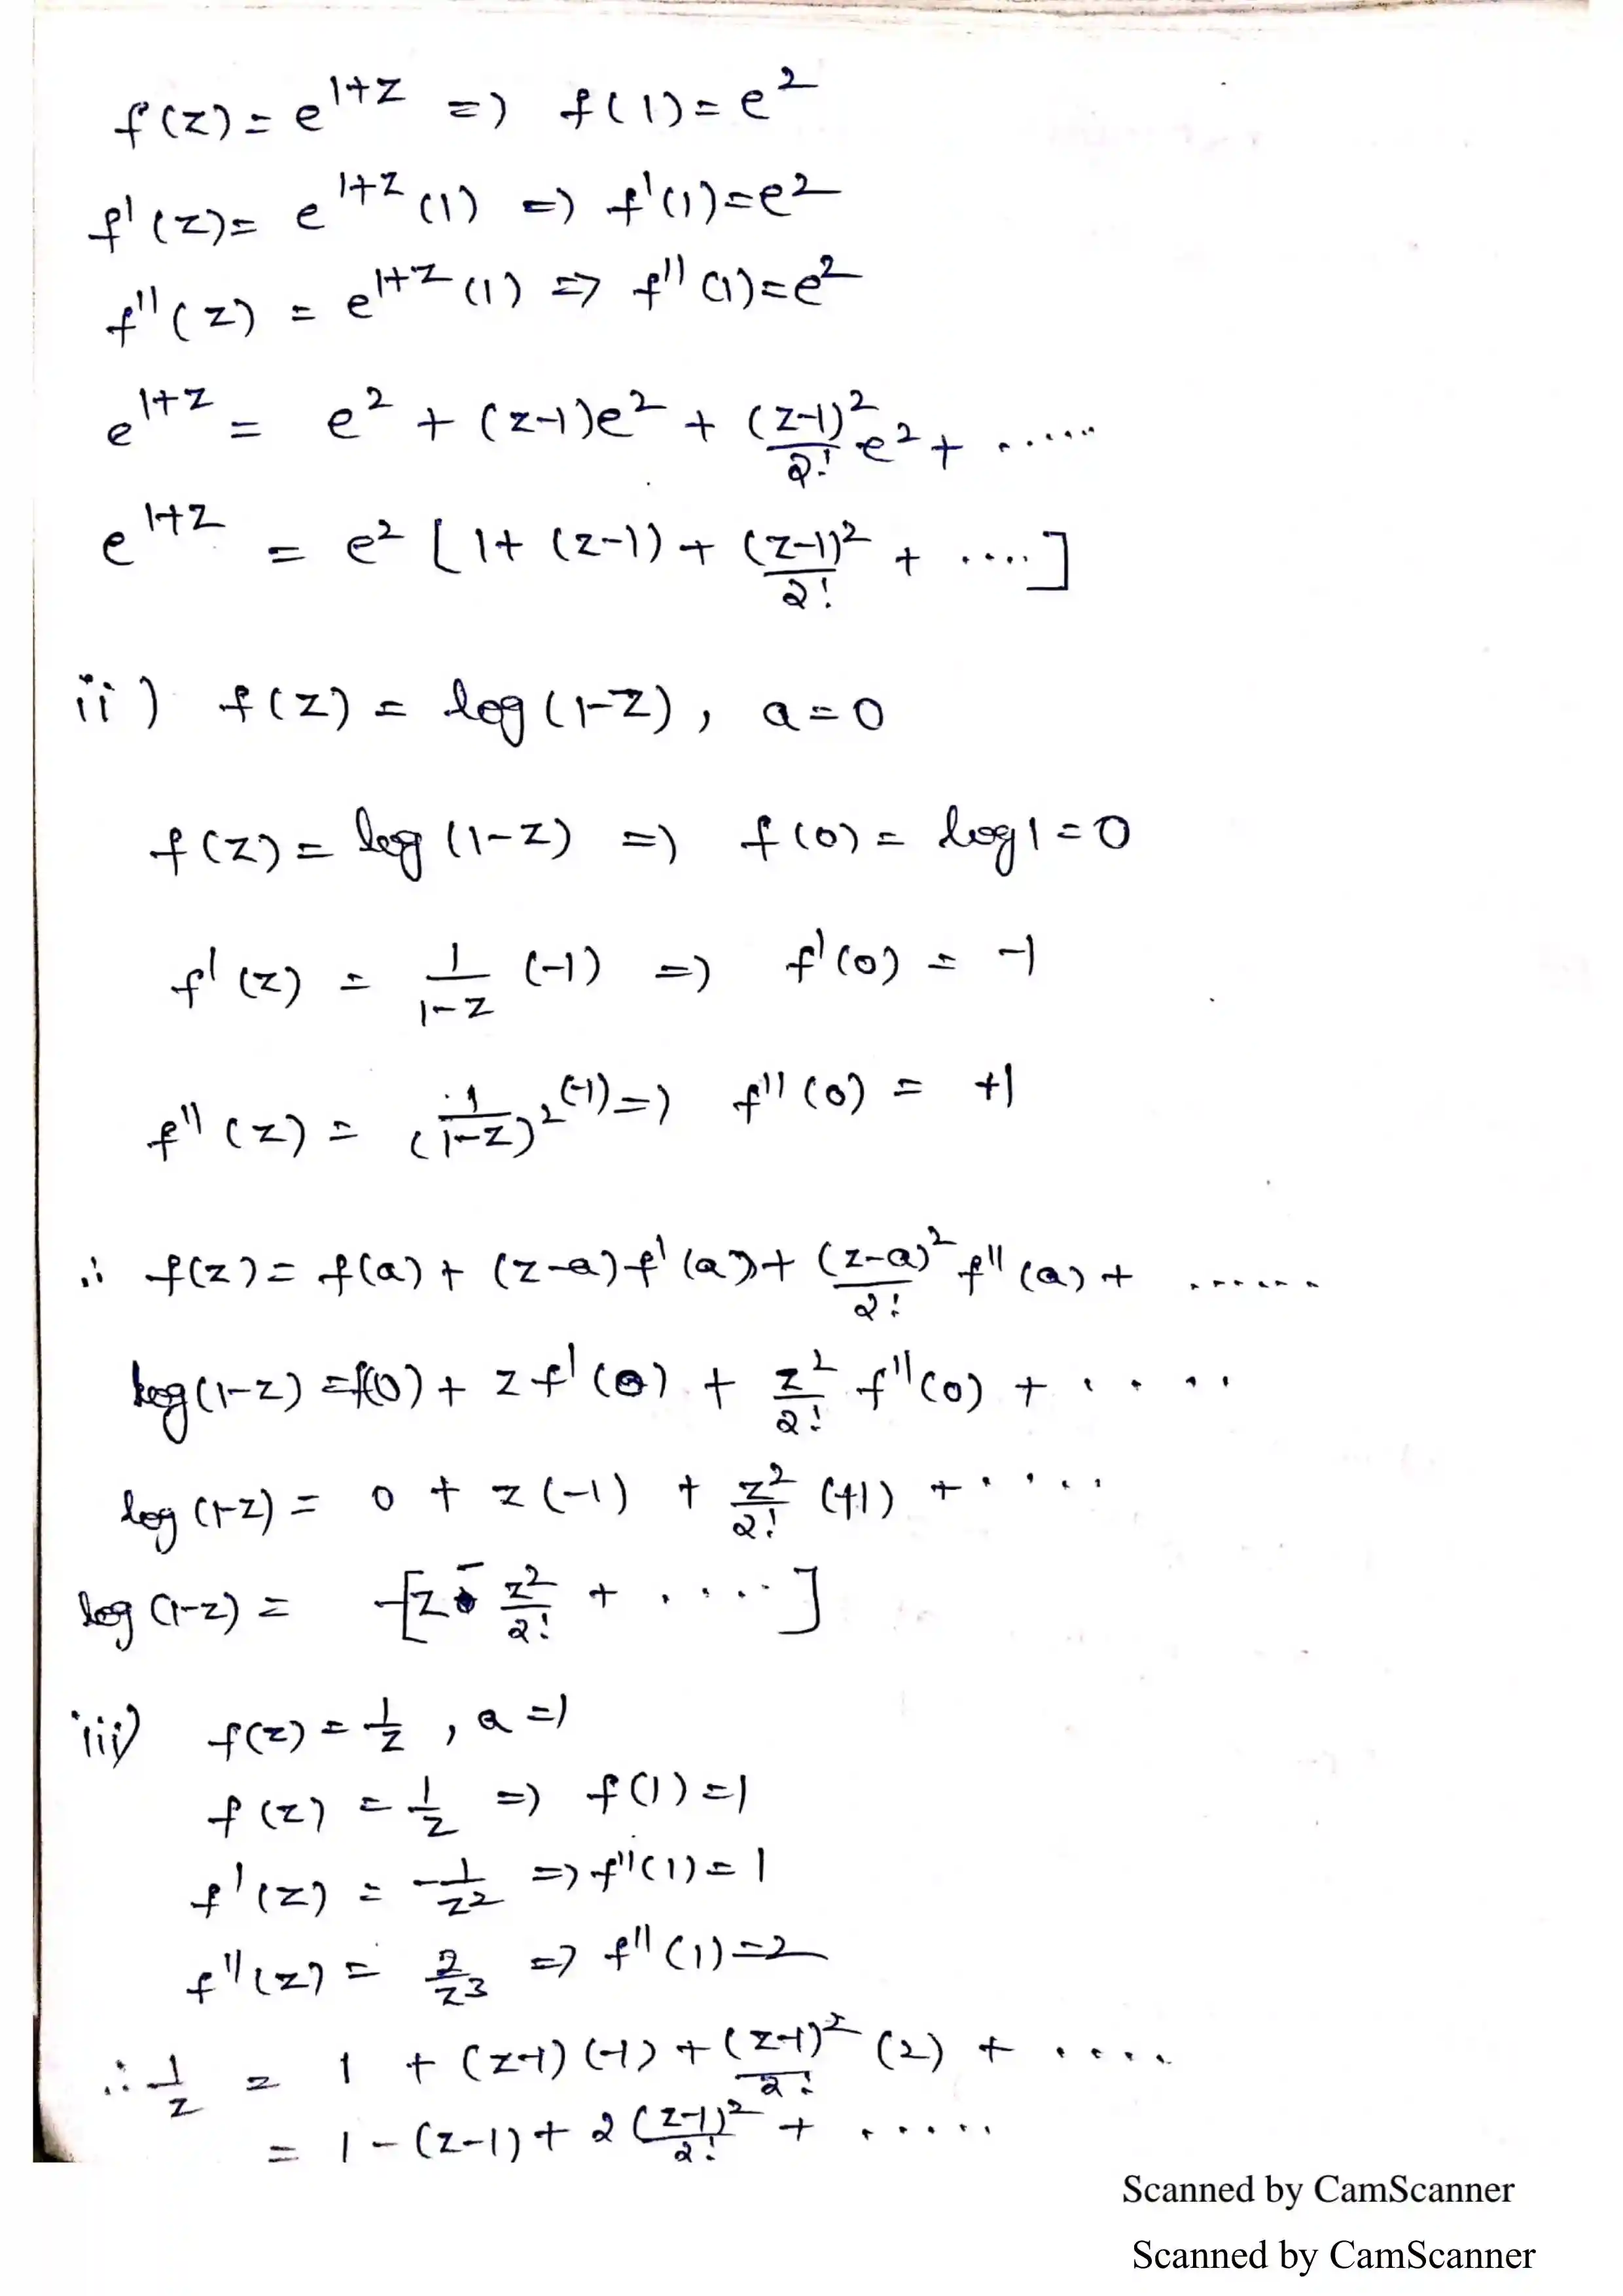 f(z) = e^{1+z} => f(1) = e^2
f'(z) = e^{1+z} (1) => f'(1) = e^2
f''(z) = e^{1+z} (1) => f''(1) = e^2
e^{1+z} = e^2 + (z-1)e^2 + \frac{(z-1)^2}{2!} e^2 + ......
e^{1+z} = e^2 [ 1 + (z-1) + \frac{(z-1)^2}{2!} + .... ]
ii) f(z) = log(1-z), a = 0
f(z) = log(1-z) => f(0) = log 1 = 0
f'(z) = \frac{1}{1-z} (-1) => f'(0) = -1
f''(z) = \frac{1}{(1-z)^2} (-1) => f''(0) = +1
∴ f(z) = f(a) + (z-a) f'(a) + \frac{(z-a)^2}{2!} f''(a) + ......
log(1-z) = f(0) + z f'(0) + \frac{z^2}{2!} f''(0) + ....
log(1-z) = 0 + z(-1) + \frac{z^2}{2!} (+1) + ....
log(1-z) = -[z - \frac{z^2}{2!} + ....]
iii) f(z) = \frac{1}{z}, a = 1
f(z) = \frac{1}{z} => f(1) = 1
f'(z) = -\frac{1}{z^2} => f''(1) = 1
f''(z) = \frac{2}{z^3} => f''(1) = 2
∴ \frac{1}{z} = 1 + (z-1)(-1) + \frac{(z-1)^2}{2!} (2) + ....
= 1 - (z-1) + 2 \frac{(z-1)^2}{2!} + .....
Scanned by CamScanner
Scanned by CamScanner